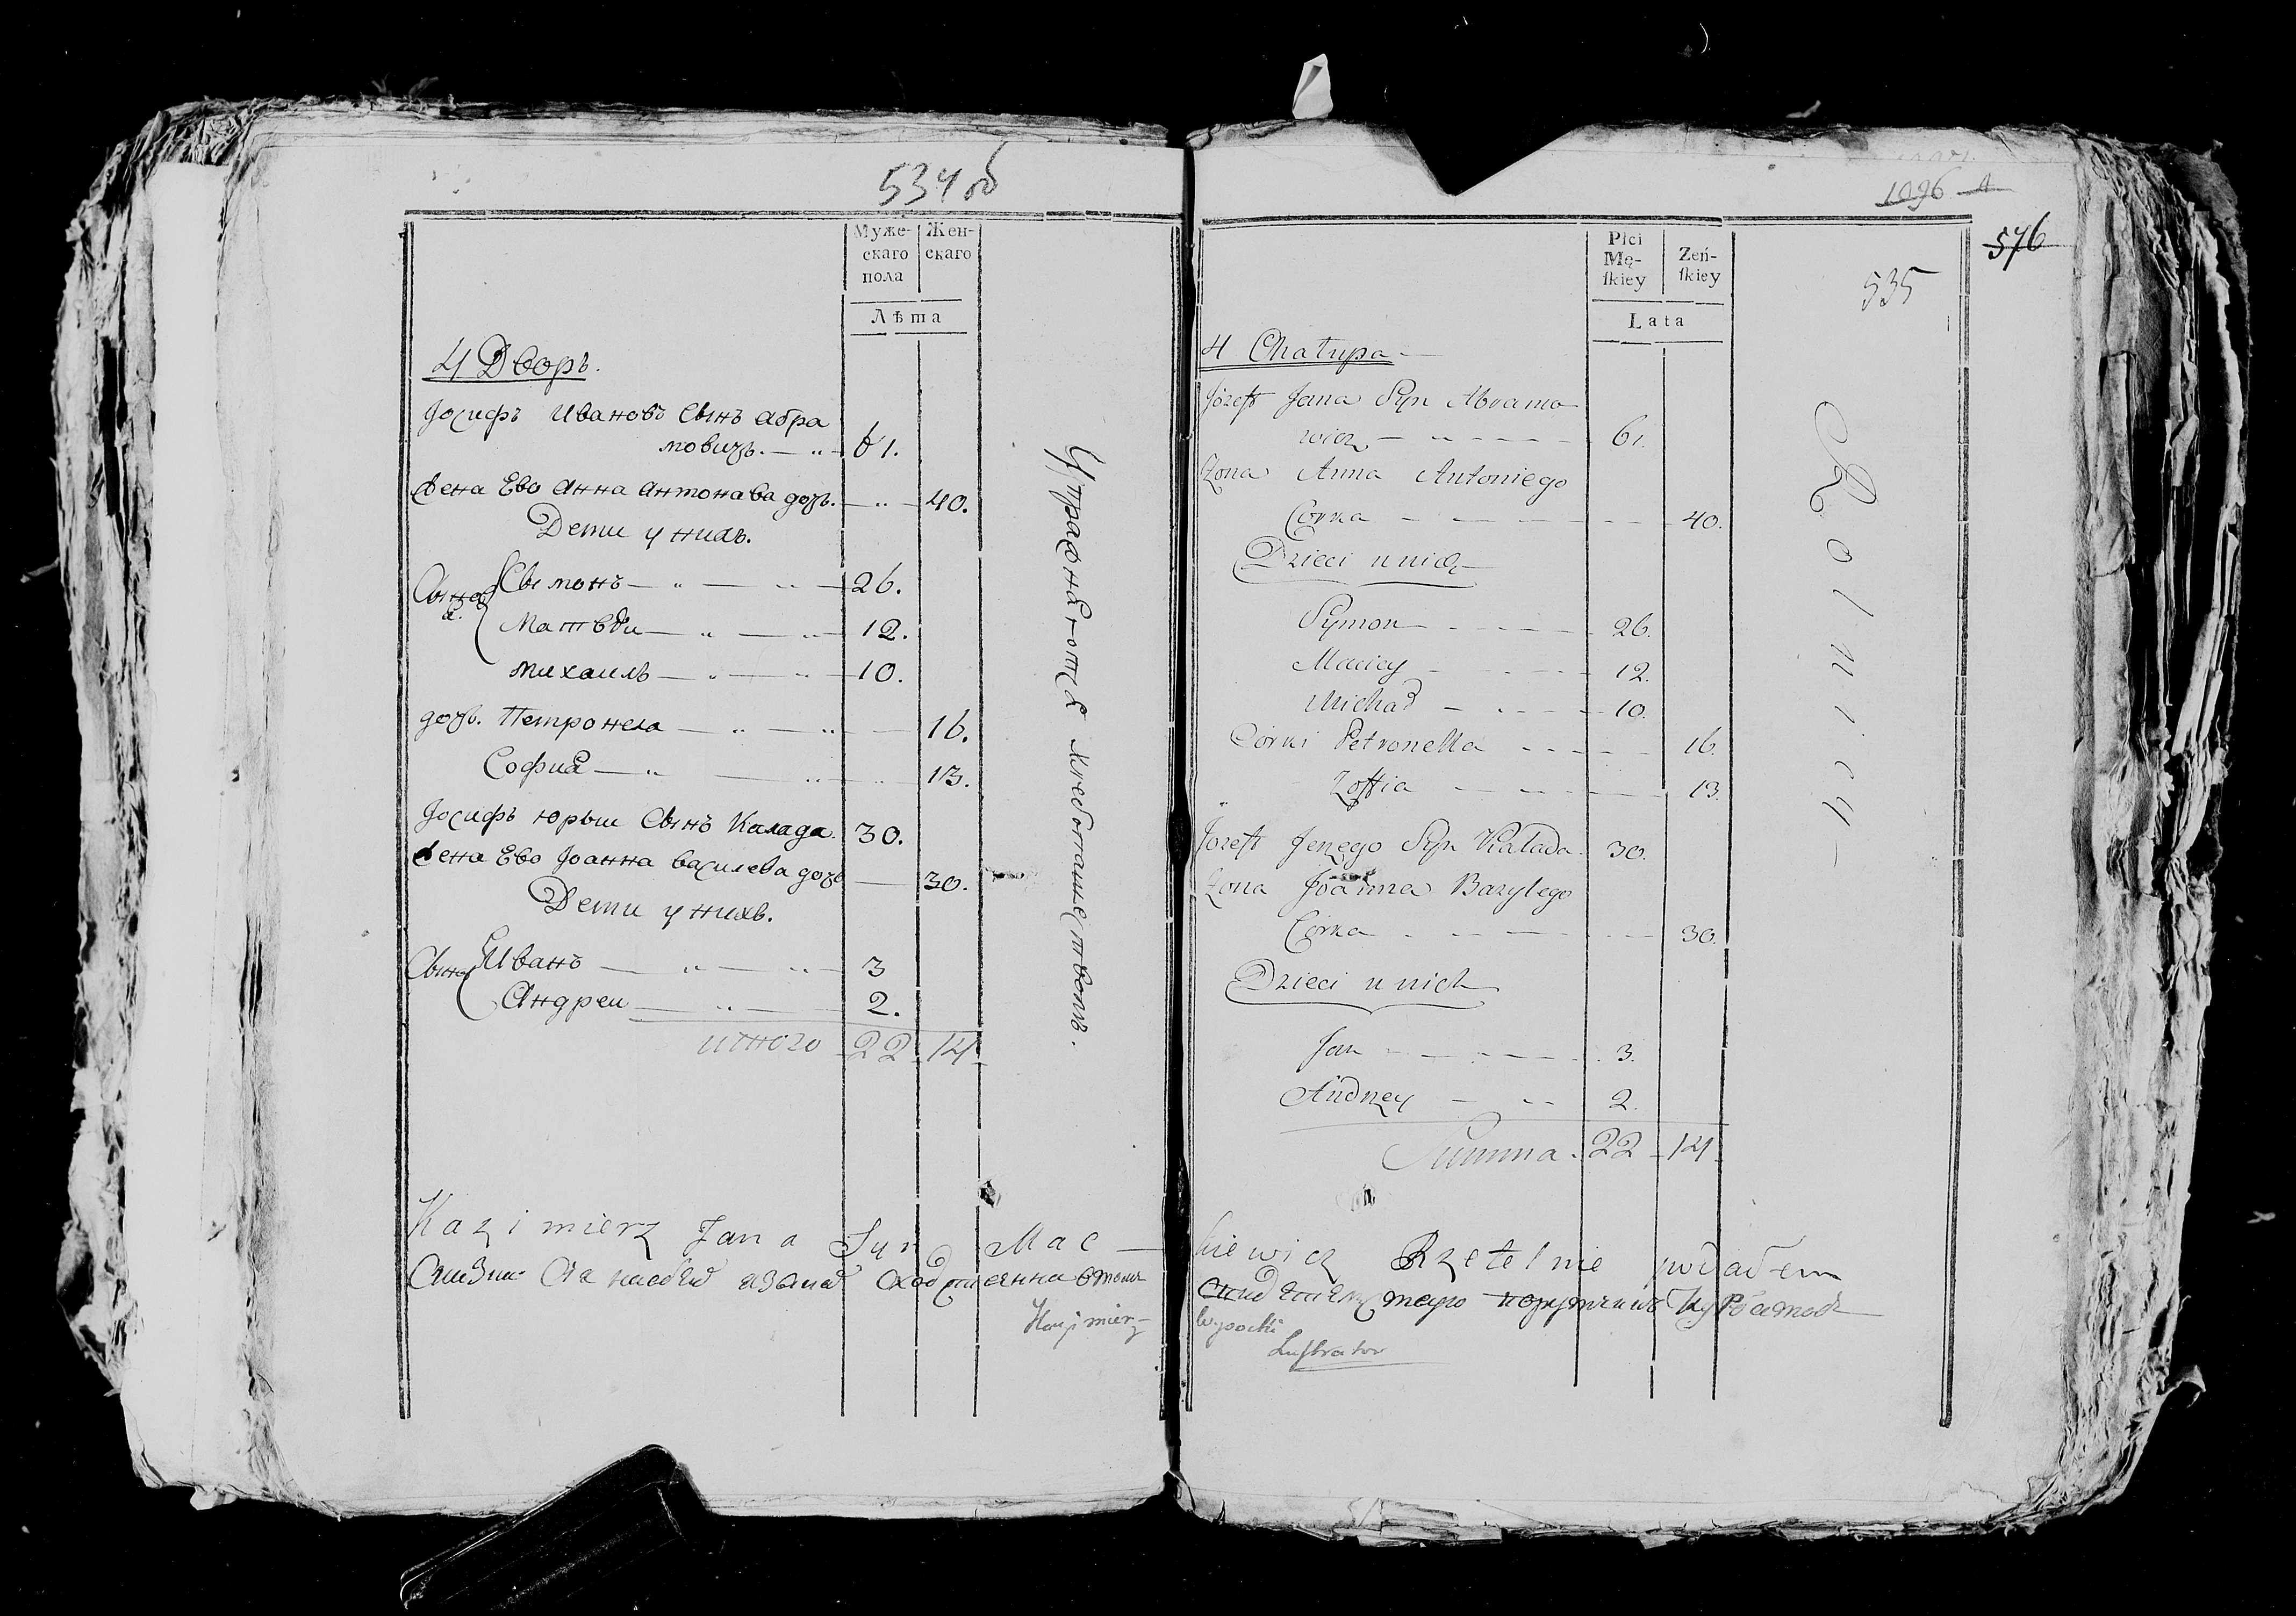 534 об
Муже-
скаго
пола
Жен-
скаго
Лѣта
4 Дворъ.
Іосифъ Ивановъ Сынъ абра
мовичъ. 61.
Жена Ево Анна Антонава дочь. 40.
Дети у нихъ.
Сынов Сымонъ 26.
Матвѣи 12.
михаилъ 10.
дочь. Петронела 16.
София 13.
Іосифъ юрьи Сынъ Калада. 30.
Жена Ево Іоанна василева дочь 30.
Дети у нихъ.
Сыны Иванъ 3
Андреи 2.
итого 22 14
Упражняются хлебопашеством.
Kazimierz Jana Syn Mac
Kazimierz
1096 4
576
535
Płci
Mę-
ſkiey
Zeń-
ſkiey
Lata
4 Chałupa
Józeff Jana Syn Abramo
wicz 61.
Zona Anna Antoniego
Corka 40.
Dzieci u nich
Symon 26.
Maciey 12.
Michał 10.
Córki Petronella 16.
Zoffia 13.
Józeff Jerzego Syn Kałada 30.
Zona Joanna Bazylego
Córka 30.
Dzieci u nich
Jan 3.
Andrzey 2.
Summa 22 14
Rolnicy
kiewicz Rzetelnie podałem
Wysocki
Luſtrator